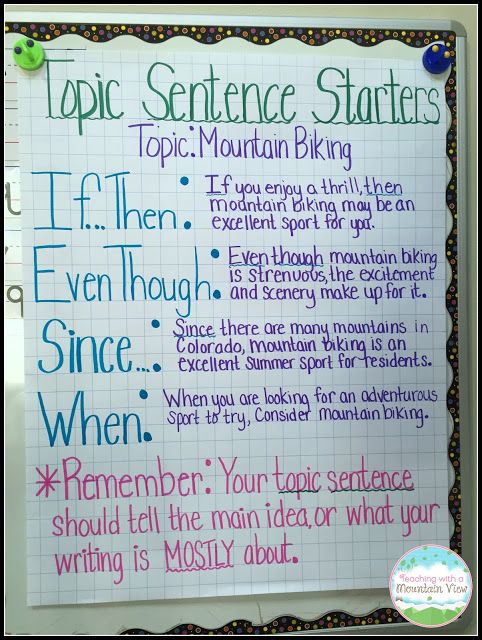 Topic Sentence Starters
Topic: Mountain Biking
If...Then:
If you enjoy a thrill, then
mountain biking may be an
excellent sport for you.
Even Though:
Even though mountain biking
is strenuous, the excitement
and scenery make up for it.
Since...:
Since there are many mountains in
Colorado, mountain biking is an
excellent summer sport for residents.
When:
When you are looking for an adventurous
sport to try, Consider mountain biking.
*Remember: Your topic sentence
should tell the main idea, or what your
writing is MOSTLY about.
Teaching with a
Mountain View